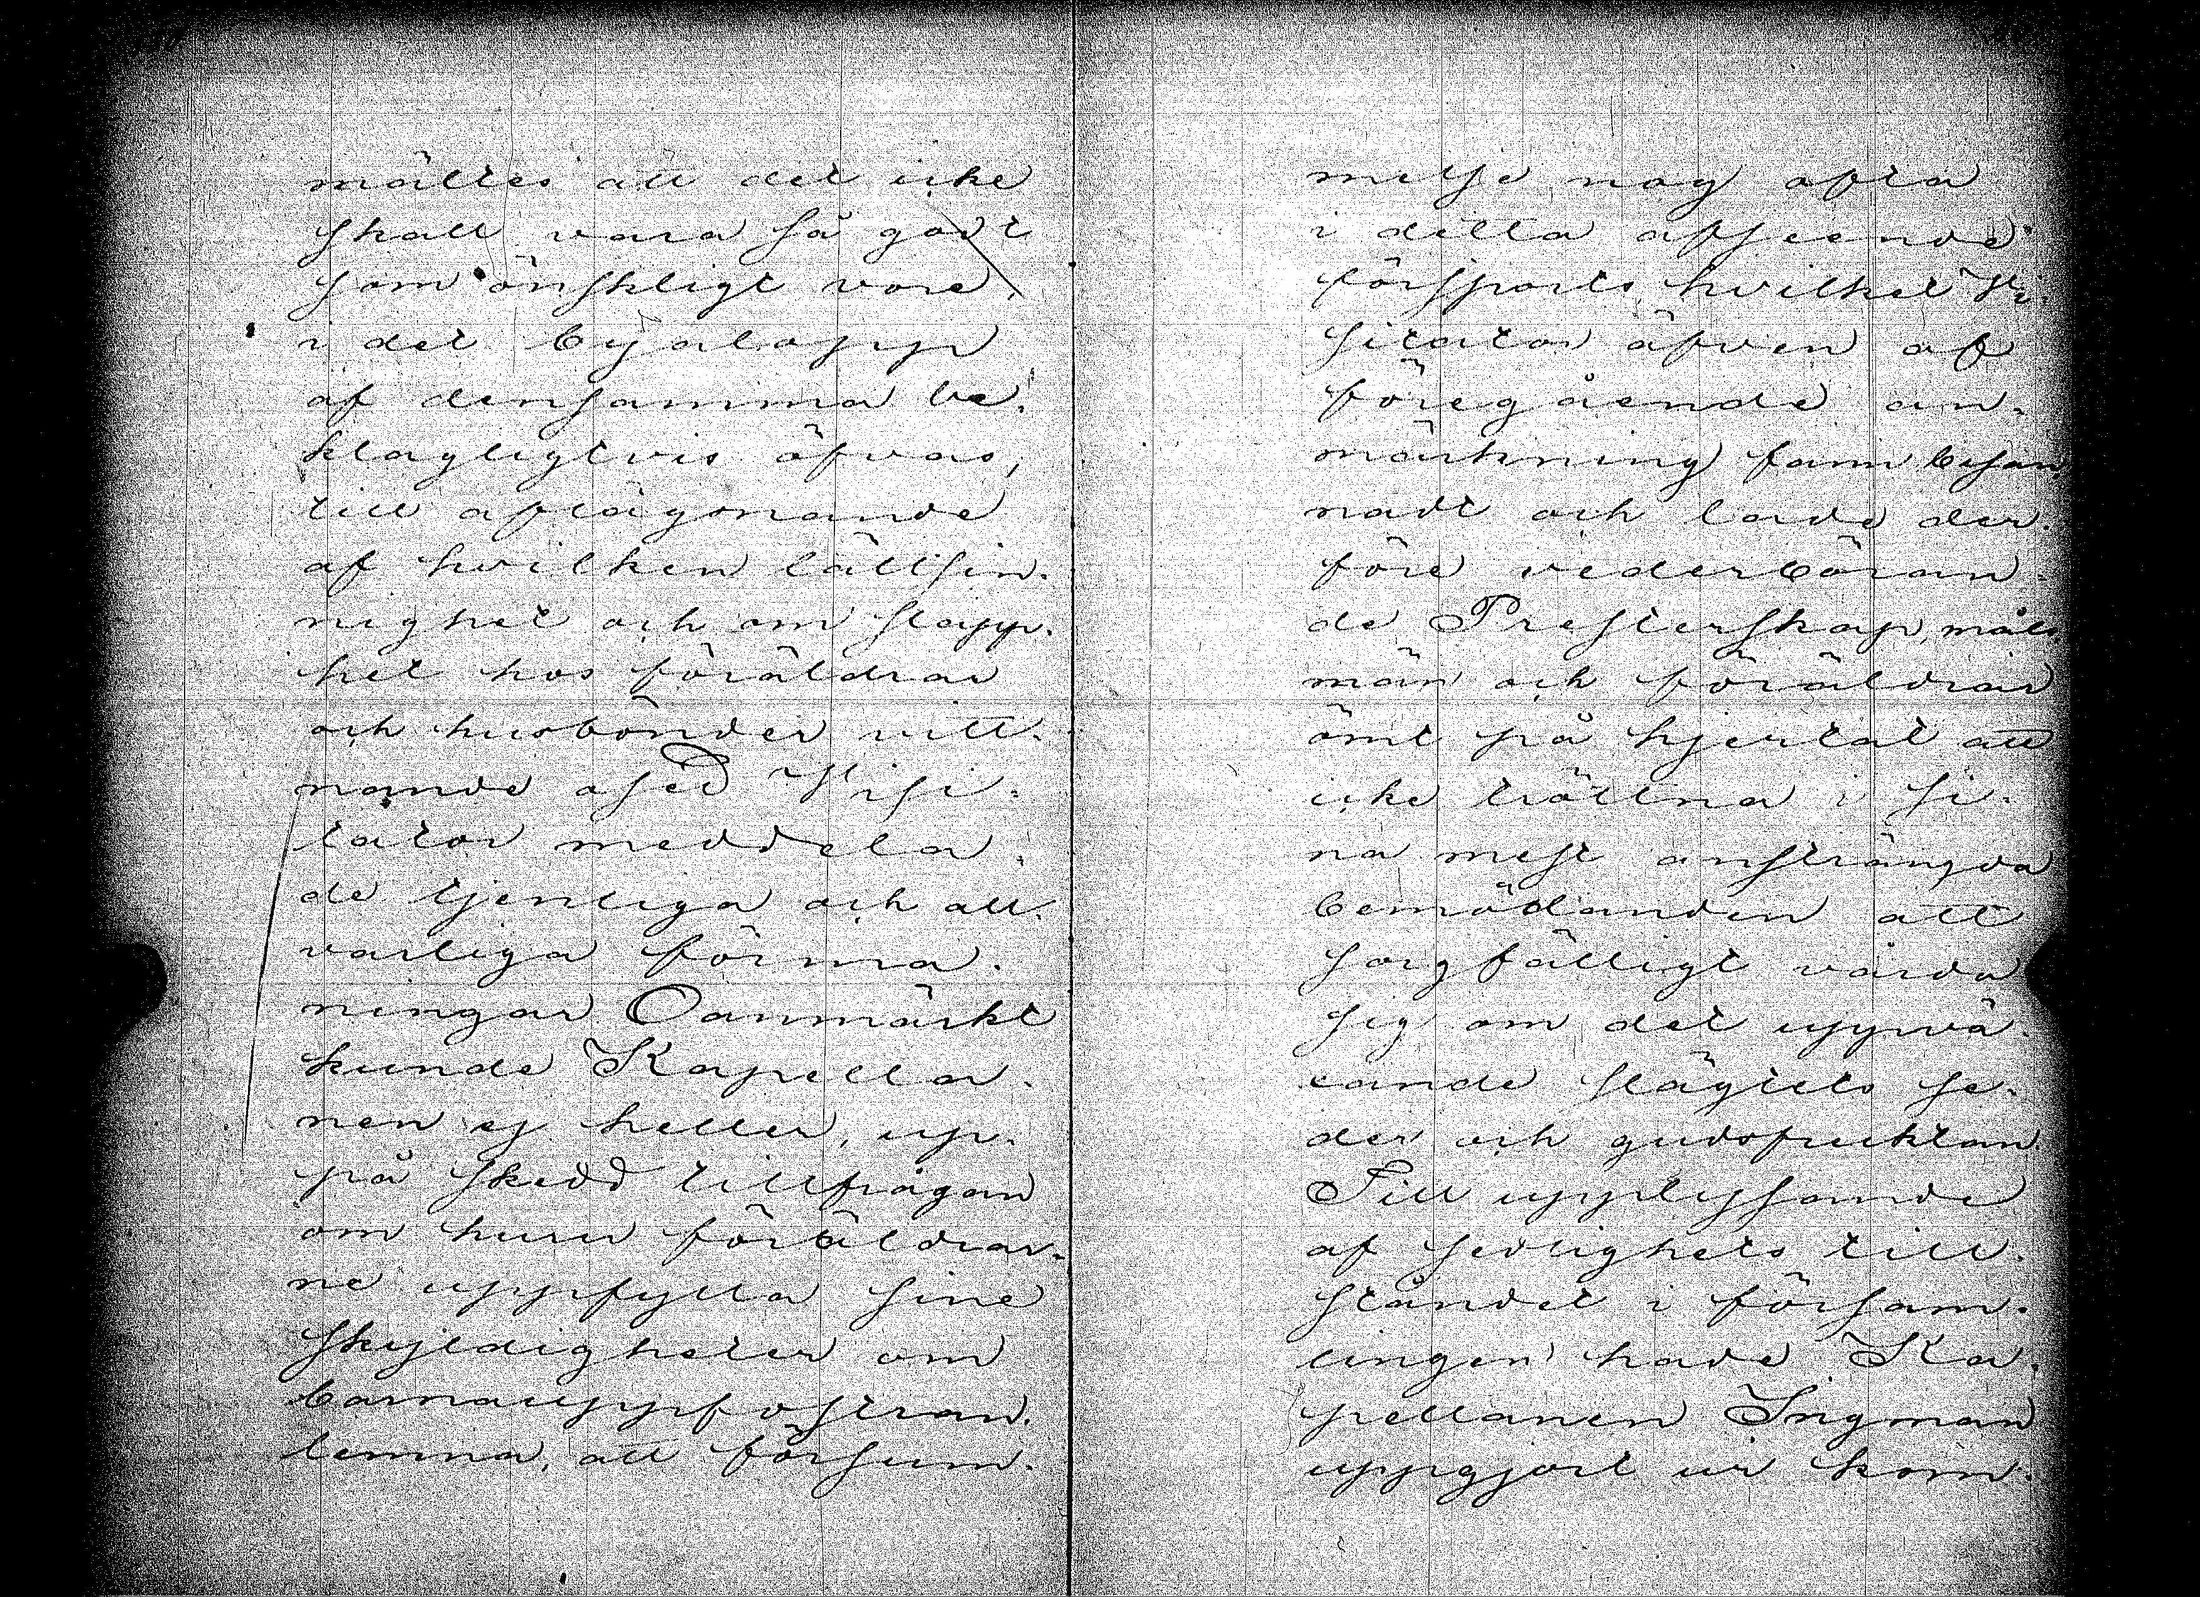 mältes att det icke
skall vara så godt
som önskligt vore,
i det byalopp
af densamma be-
klagligtvis öfvas,
till aflägsnande
af hvilken lättsin-
nighet och om slapp-
het hos föräldrar
och husbönder vitt-
nande osed Visi-
tator meddela-
de tjenliga och all-
varliga förma-
ningar Oanmärkt
kunde Kapella-
nen ej heller, up-
på skedd tillfrågan
om huru föräldrar-
ne uppfylla sine
skyldigheter om
barnauppfostran
lemna, att försum-
melse nog ofta
i detta afseende
försports, hvilket Vi-
sitator äfven af
föregående an-
märkning fann besan-
nadt och lade der-
före vederböran-
de Presterskap, måls-
män och föräldrar
ömt på hjertat att
icke tröttna i si-
na mest ansträngda
bemödanden att
sorgfälligt vårda
sig om det uppvä-
xande slägtets se-
der och gudsfruktan.
Till upplysande
af sedlighets till-
ståndet i försam-
lingen hade Ka-
pellanen Ingman
uppgjort ur kom-